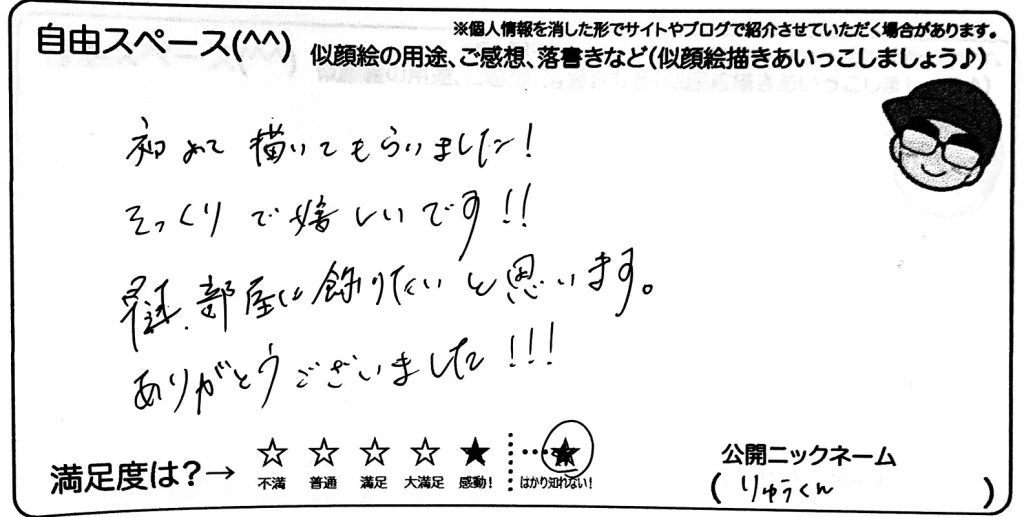 ※個人情報を消した形でサイトやブログで紹介させていただく場合があります。
自由スペース(^^) 似顔絵の用途、ご感想、落書きなど(似顔絵描きあいっこしましょう♪)
初めて描いてもらいました!
そっくりで嬉しいです!!
部屋に飾りたいと思います。
ありがとうございました!!!
満足度は?→ ☆ ☆ ☆ ☆ ★ ・・・★
不満 普通 満足 大満足 感動! はかり知れない!
公開ニックネーム
(りゅうくん)